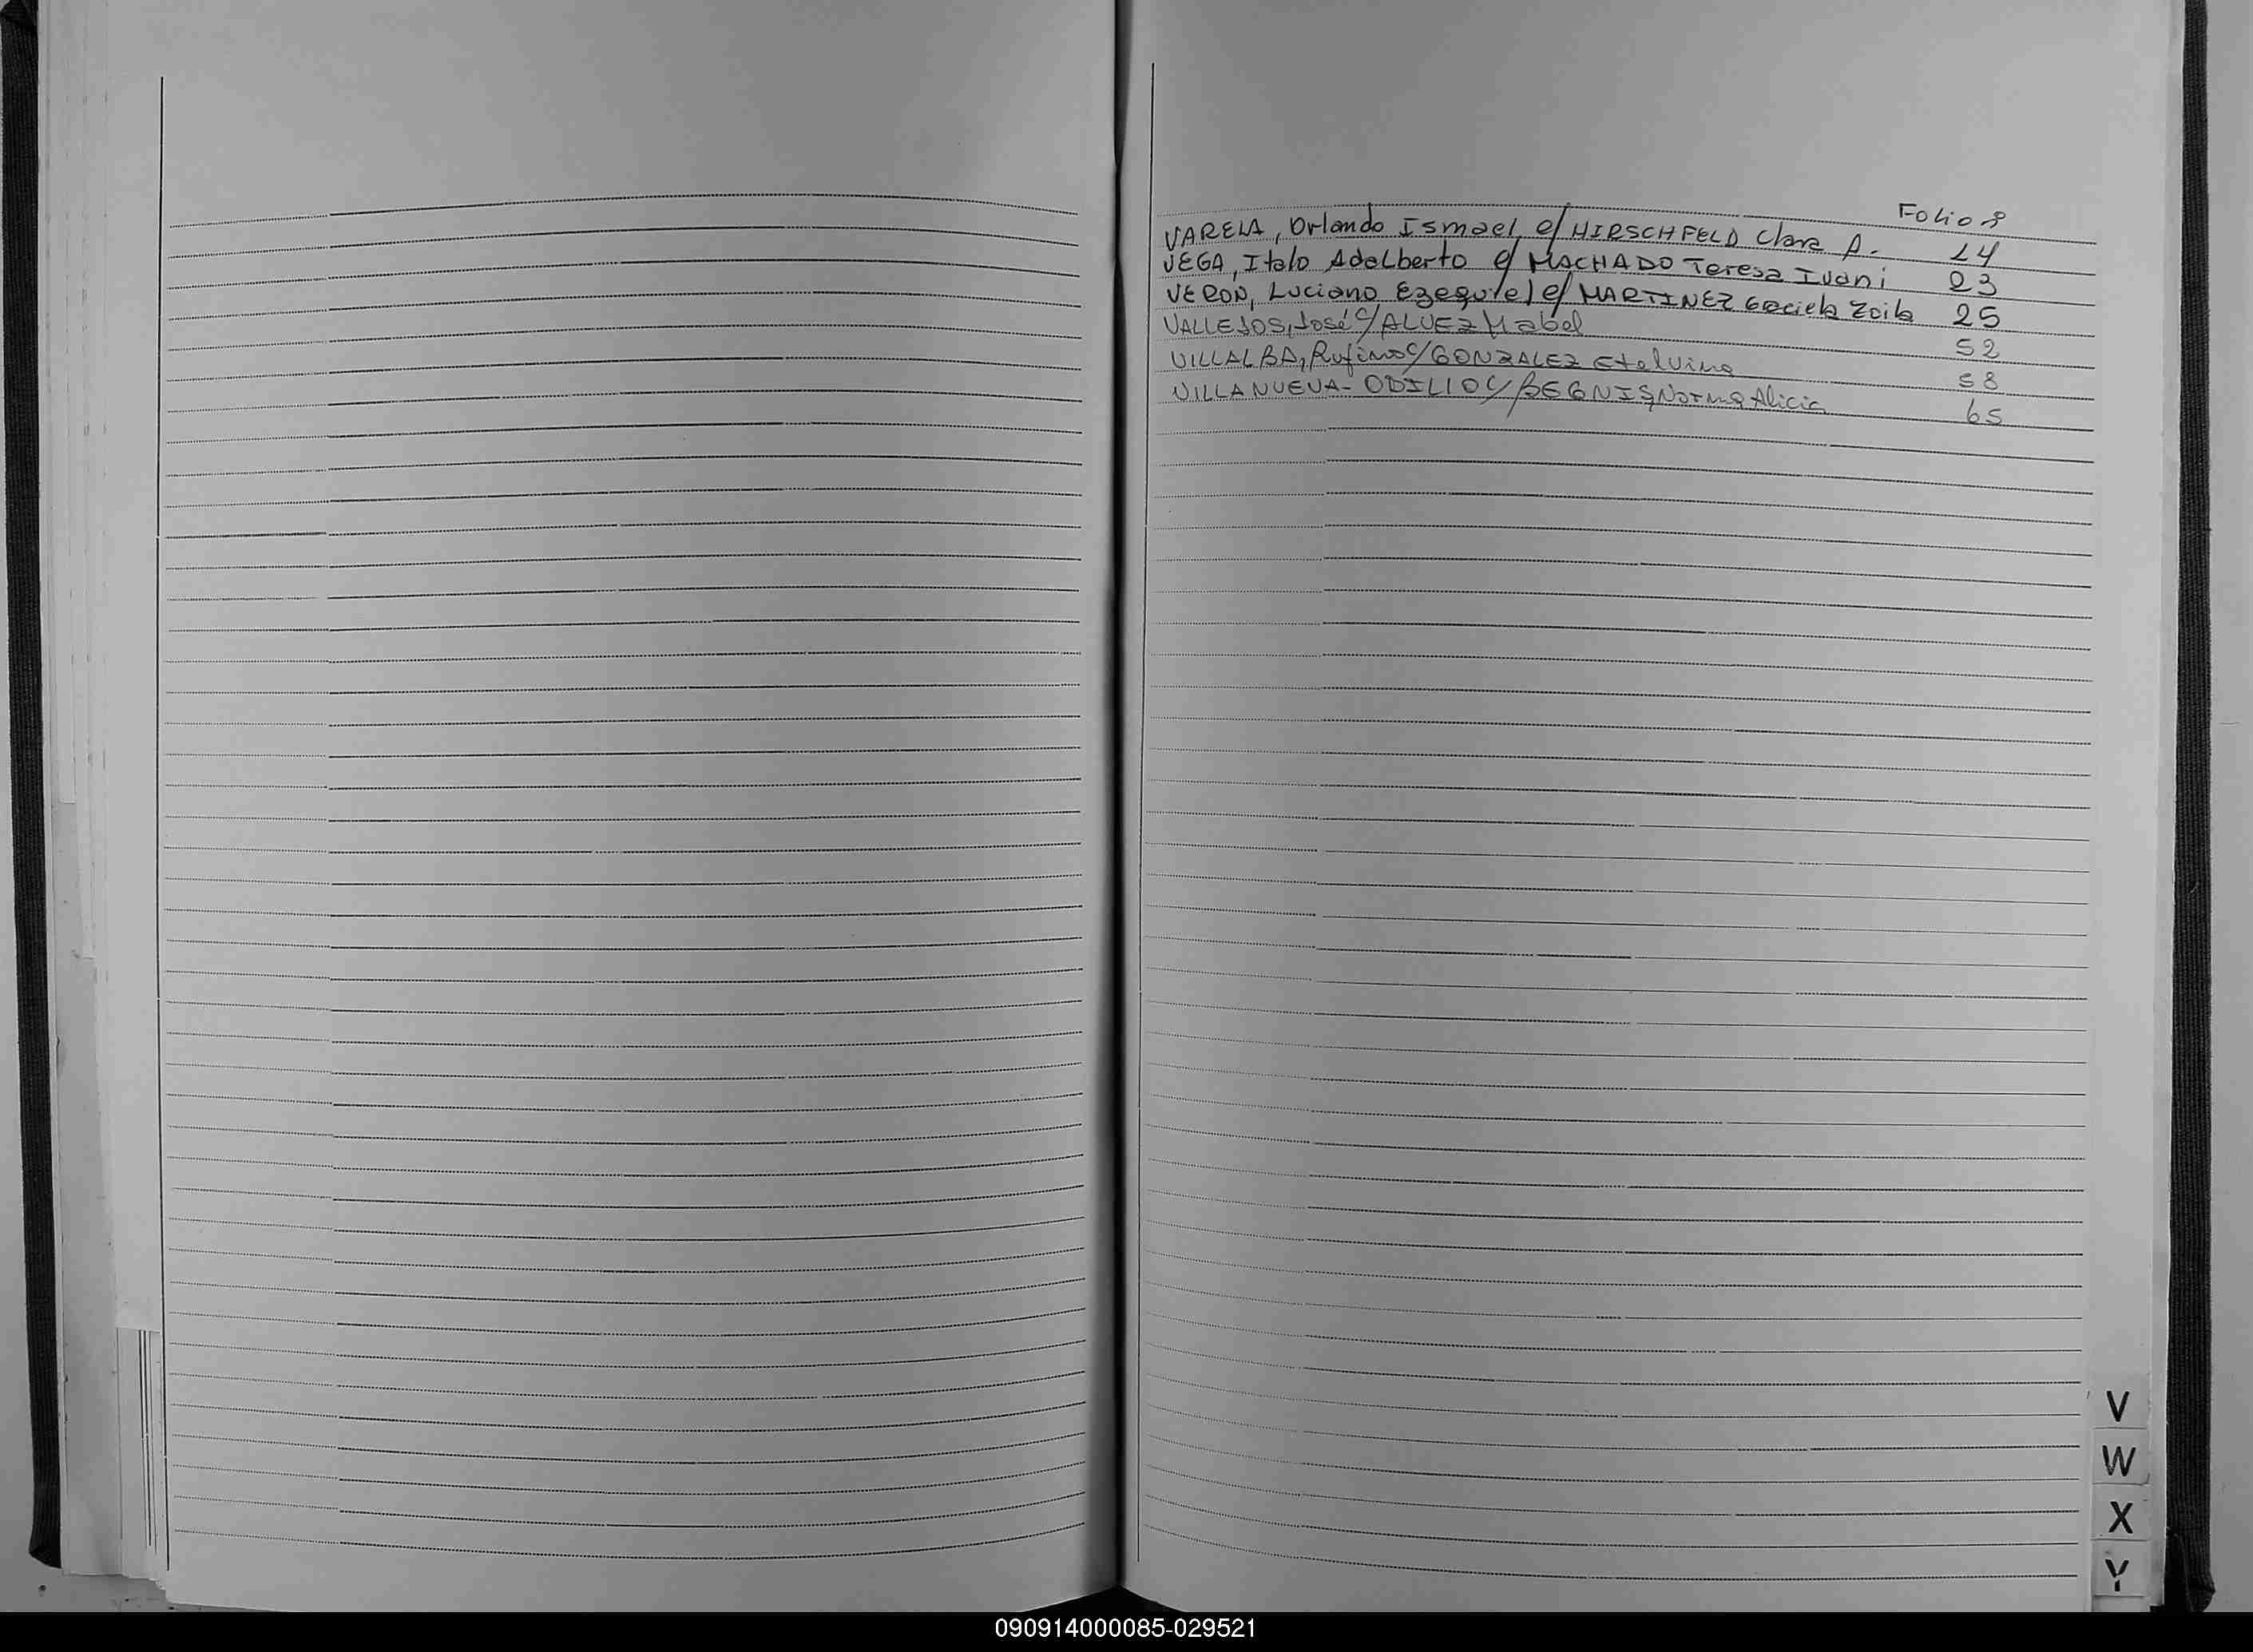 Folio s
VARELA, Orlando Ismael c/ HIRSCHFELD Clara A. 14
VEGA, Italo Adalberto c/ MACHADO Teresa Ivani 23
VERON, Luciano Ezequiel c/ MARTINEZ Graciela Zoila 25
VALLEJOS, José c/ ALVEZ Mabel 52
VILLALBA, Rufino c/ GONZALEZ Etelvina 58
VILLANUEVA - ODILIO c/ BEGNIS, Norma Alicia 65
V
W
X
Y
090914000085-029521